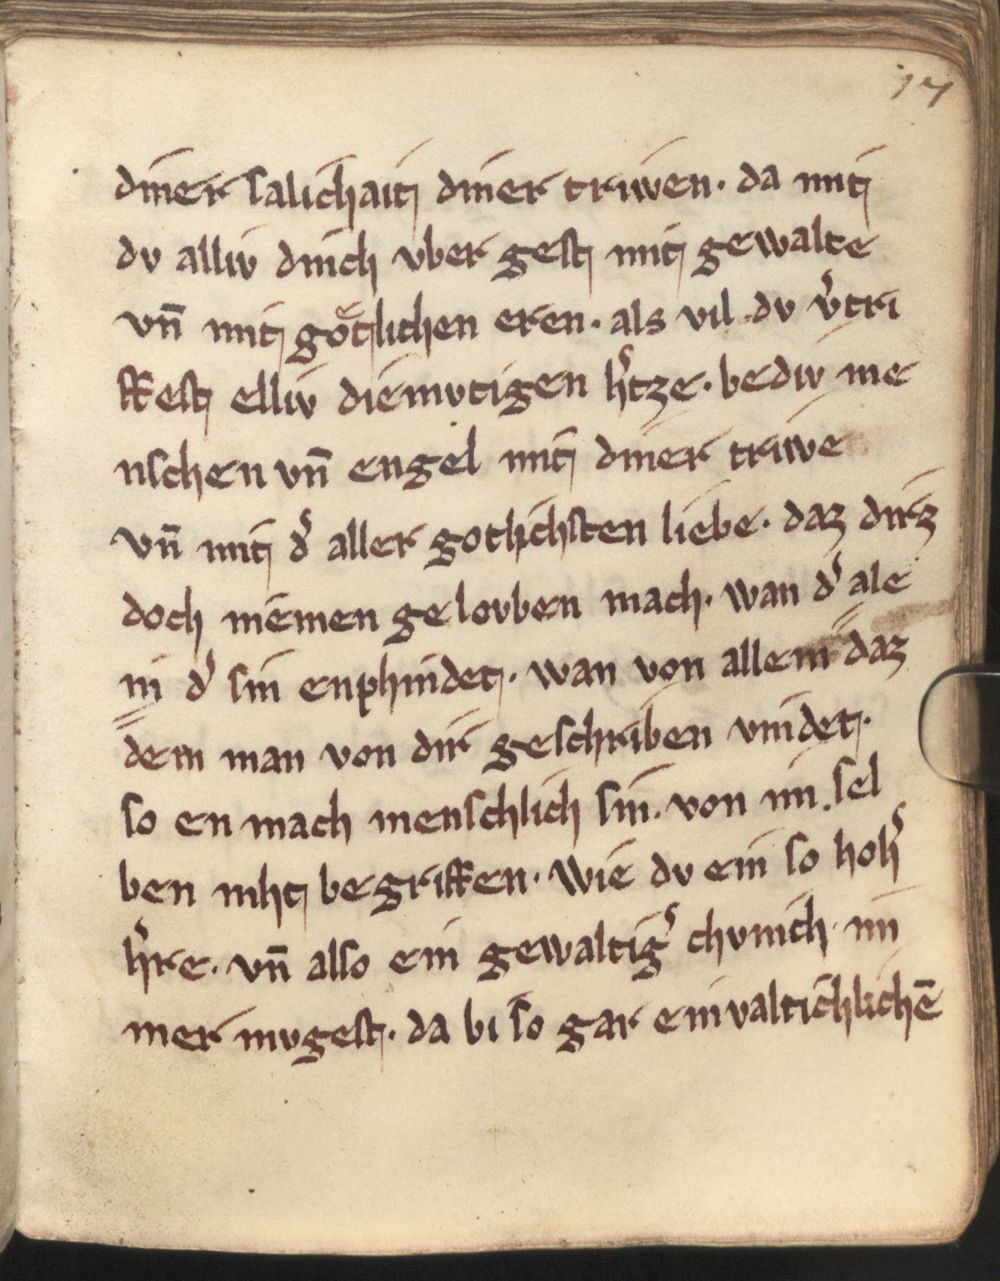 17
diner salichait diner triwen· da mit
dv alliv dinch vber gest mit gewalte
vn̄ mit gőtlichen eren· als vil dv v̾tri
ffest elliv diemvtigen h̾tze· bediv me
nschen vn̄ engel mit diner triwe
vn̄ mit d̾ aller gotlichsten liebe· daz dirz
doch niemen gelovben mach· wan d̾ ale
in d̾ sin enphindet· wan von allem daz
dem man von dir geschriben vindet·
so en mach menschlich sin· von im sel
ben niht begriffen· Wie dv ein so hoh̾
h̾re· vn̄ also ein gewaltig̾ chvnich· im
mer mvgest· da bi so gar einvaltichlichē